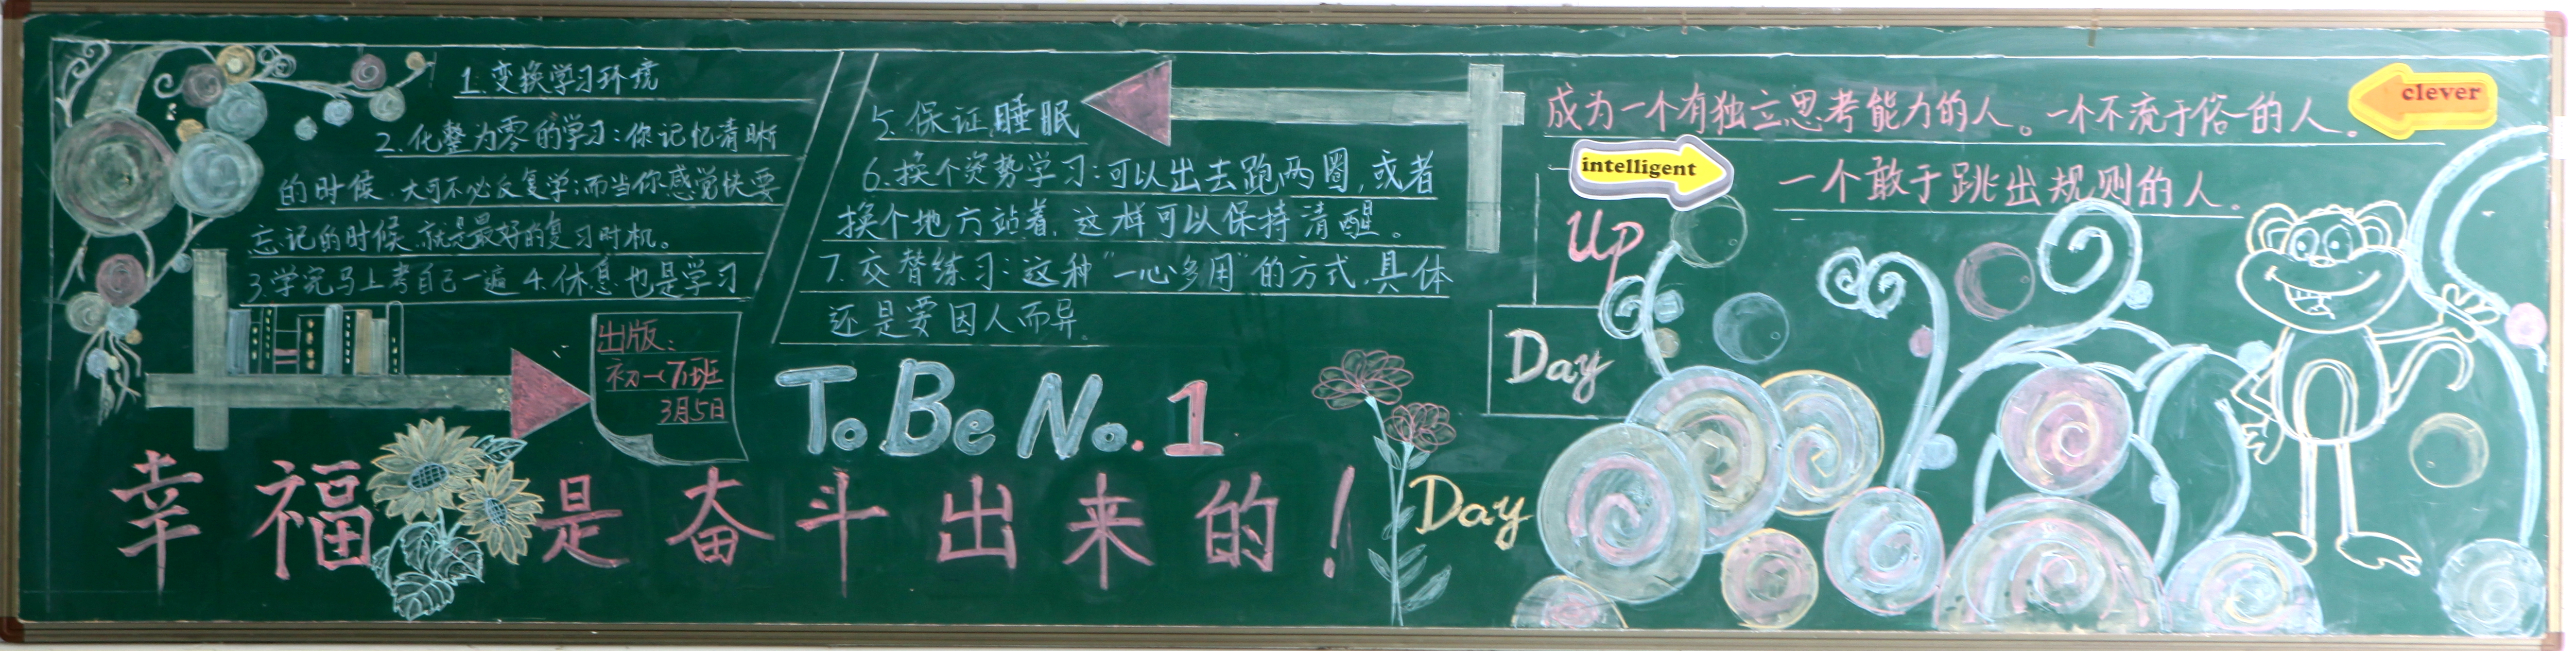 1.变换学习环境
2.化整为零的学习:你记忆清晰
的时候,大可不必反复学;而当你感觉快要
忘记的时候,就是最好的复习时机。
3.学完马上考自己一遍 4.休息也是学习
5.保证睡眠
6.换个姿势学习:可以出去跑两圈,或者
换个地方站着,这样可以保持清醒。
7.交替练习:这种“一心多用”的方式,具体
还是要因人而异。
出版:
初一(7)班
3月5日
To Be No.1
幸福是奋斗出来的!
成为一个有独立思考能力的人。一个不流于俗的人。
clever
intelligent
一个敢于跳出规则的人。
Up
Day
Day